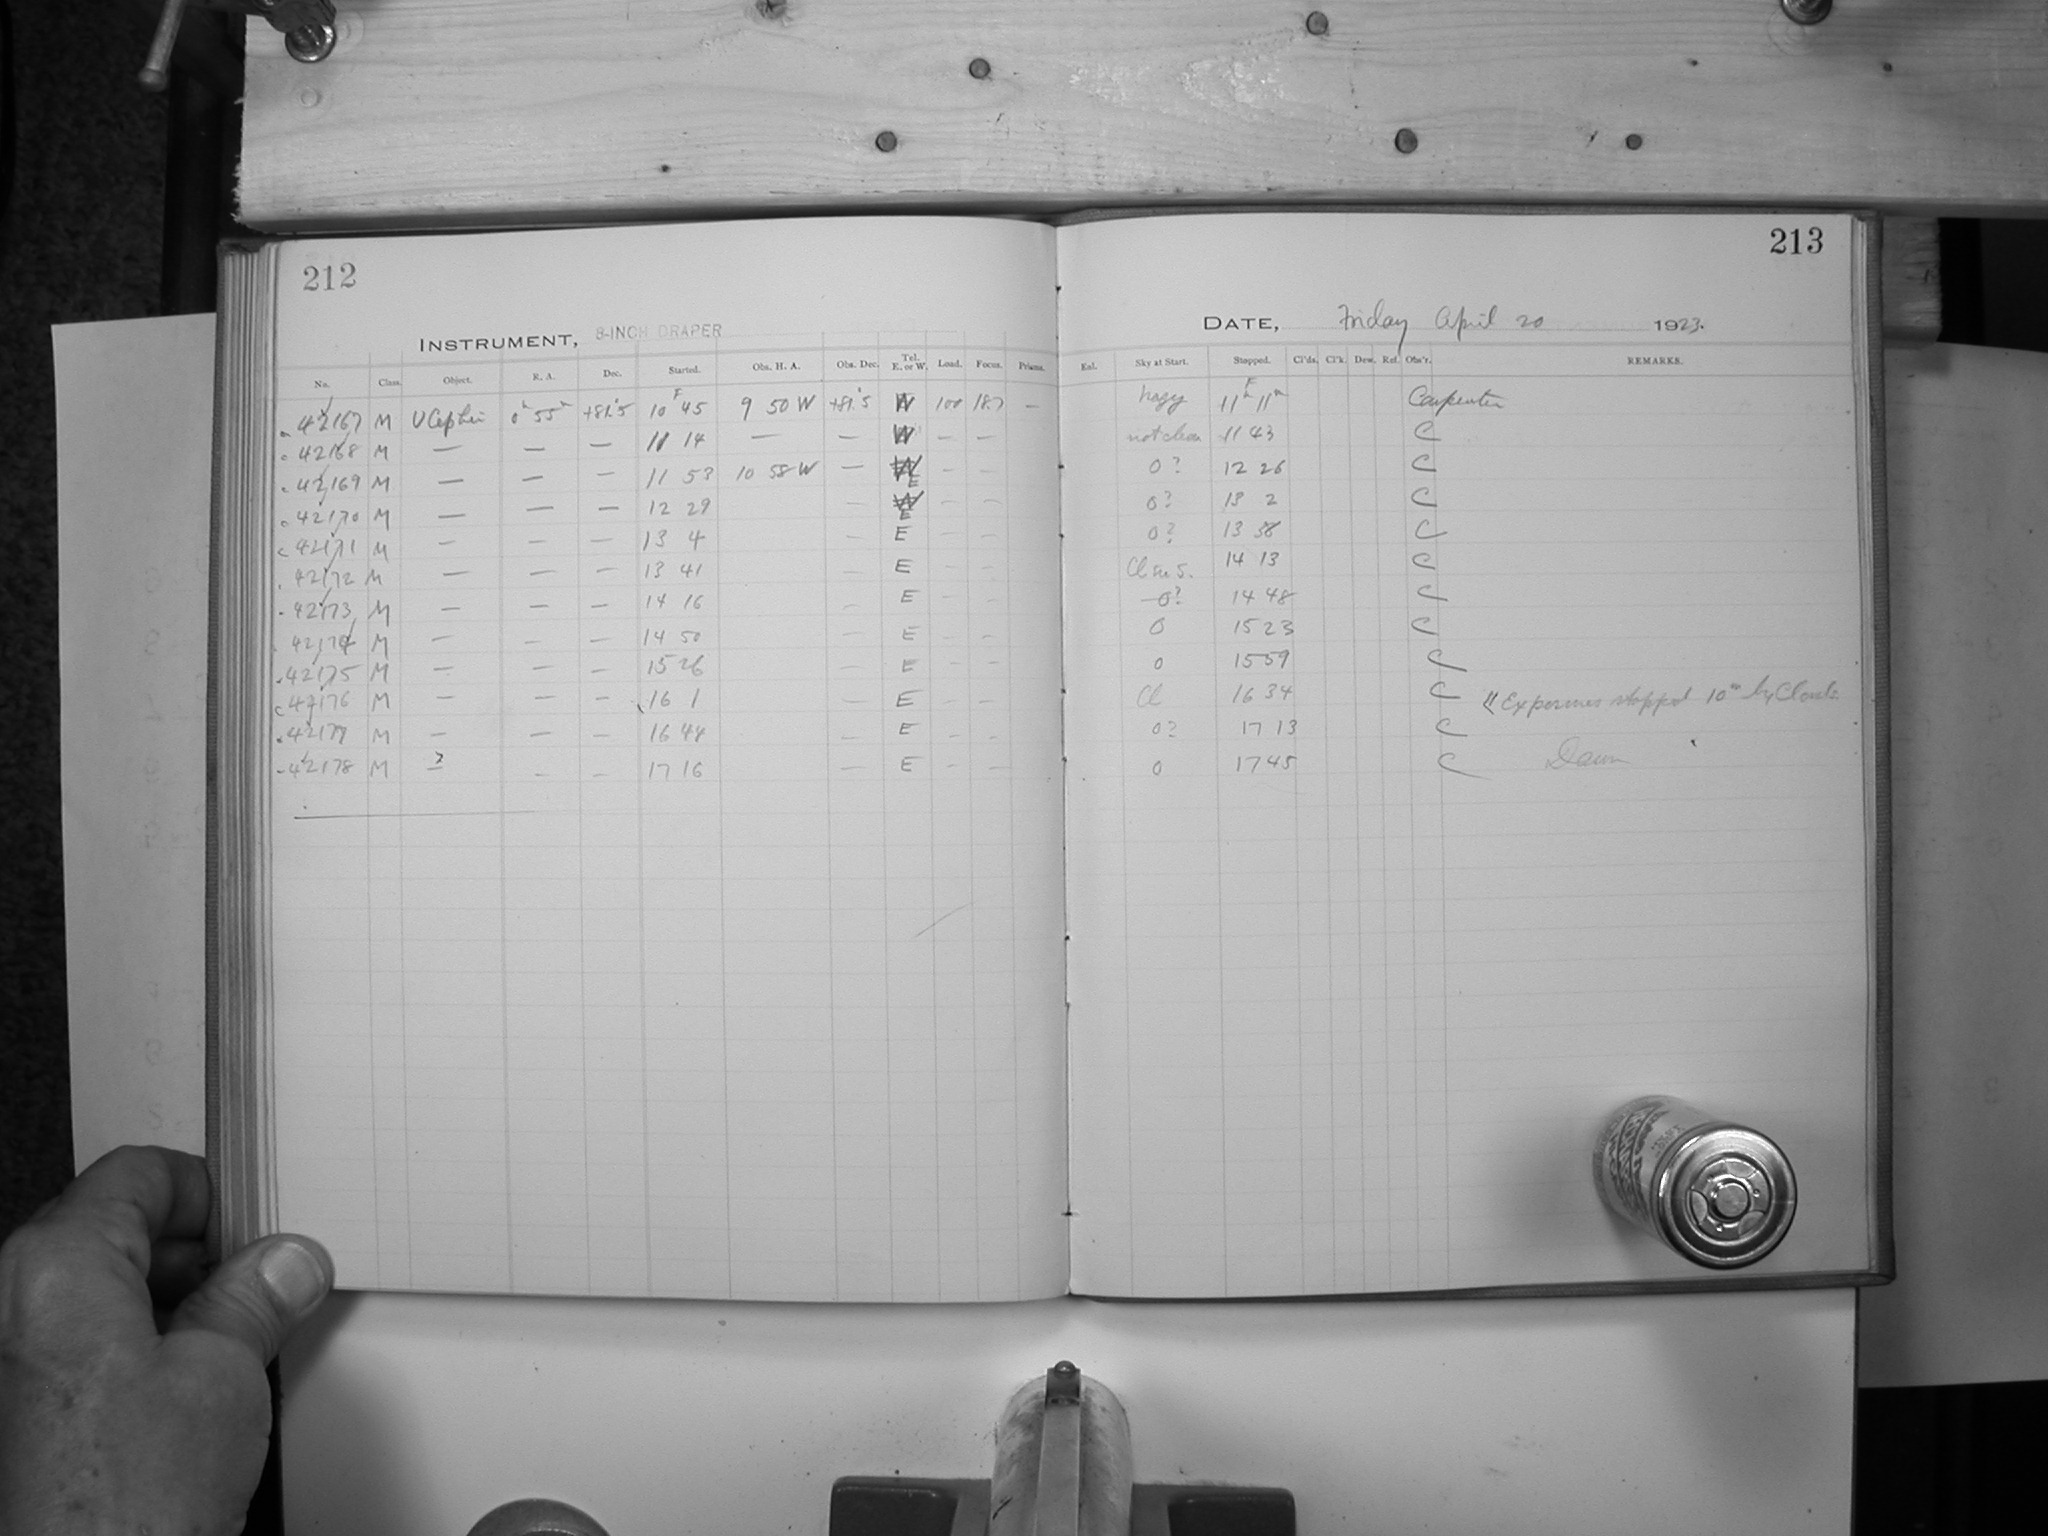 212
213
INSTRUMENT, 8-INCH DRAPER
DATE, Friday April 20 1923.
No. Class. Object. R. A. Dec. Started. Obs. H. A. Obs. Dec. Tel. E. or W. Load. Focus. Prisms. Enl. Sky at Start. Stopped. Cl'ds. Cl'k. Dew. Ref. Obs'r. REMARKS.
42167 M U Cephei 0h 55m +81.5 10 F 45 9 50 W +81.5 W 100 18.7 — hazy 11h F 11m Carpenter
42168 M — — — 11 14 — — W — — not clear 11 43 C
42169 M — — — 11 53 10 58 W — E — — 0? 12 26 C
42170 M — — — 12 29 — E — — 0? 13 2 C
42171 M — — — 13 4 — E — — 0? 13 C
42172 M — — — 13 41 — E — — Cl in S. 14 13 C
42173 M — — — 14 16 — E — — 0? 14 48 C
42174 M — — — 14 50 — E — — 0 15 23 C
42175 M — — — 15 26 — E — — 0 15 59 C
42176 M — — — 16 1 E — — Cl 16 34 C Exposures stopped 10m by Clouds.
42177 M — — — 16 44 — E — — 0? 17 13 C
42178 M ? — — — 17 16 — E — — 0 17 45 C Dawn